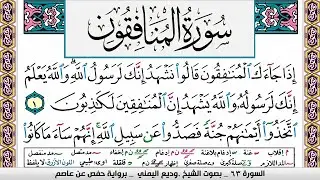 سُورَةُ المُنَافِقُونَ
إِذَا جَآءَكَ ٱلْمُنَٰفِقُونَ قَالُوا۟ نَشْهَدُ إِنَّكَ لَرَسُولُ ٱللَّهِ ۗ وَٱللَّهُ يَعْلَمُ
إِنَّكَ لَرَسُولُهُۥ وَٱللَّهُ يَشْهَدُ إِنَّ ٱلْمُنَٰفِقِينَ لَكَٰذِبُونَ ١
ٱتَّخَذُوٓا۟ أَيْمَٰنَهُمْ جُنَّةً فَصَدُّوا۟ عَن سَبِيلِ ٱللَّهِ ۚ إِنَّهُمْ سَآءَ مَا كَانُوا۟
السورة ٦٣ - بصوت الشيخ .وديع اليمني - برواية حفص عن عاصم